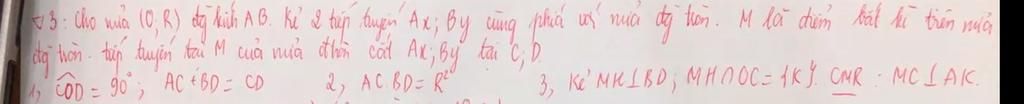 V3: Cho nửa (O;R) đg kính AB. Kẻ 2 tiếp tuyến Ax; By cùng phía với nửa đg tròn. M là điểm bất kì trên nửa
đg tròn. tiếp tuyến tại M của nửa đtròn cắt Ax; By tại C; D.
1, \widehat{COD} = 90°; AC + BD = CD 2, AC.BD = R² 3, Kẻ MH⊥BD; MH∩OC={K}. CMR: MC⊥AK.